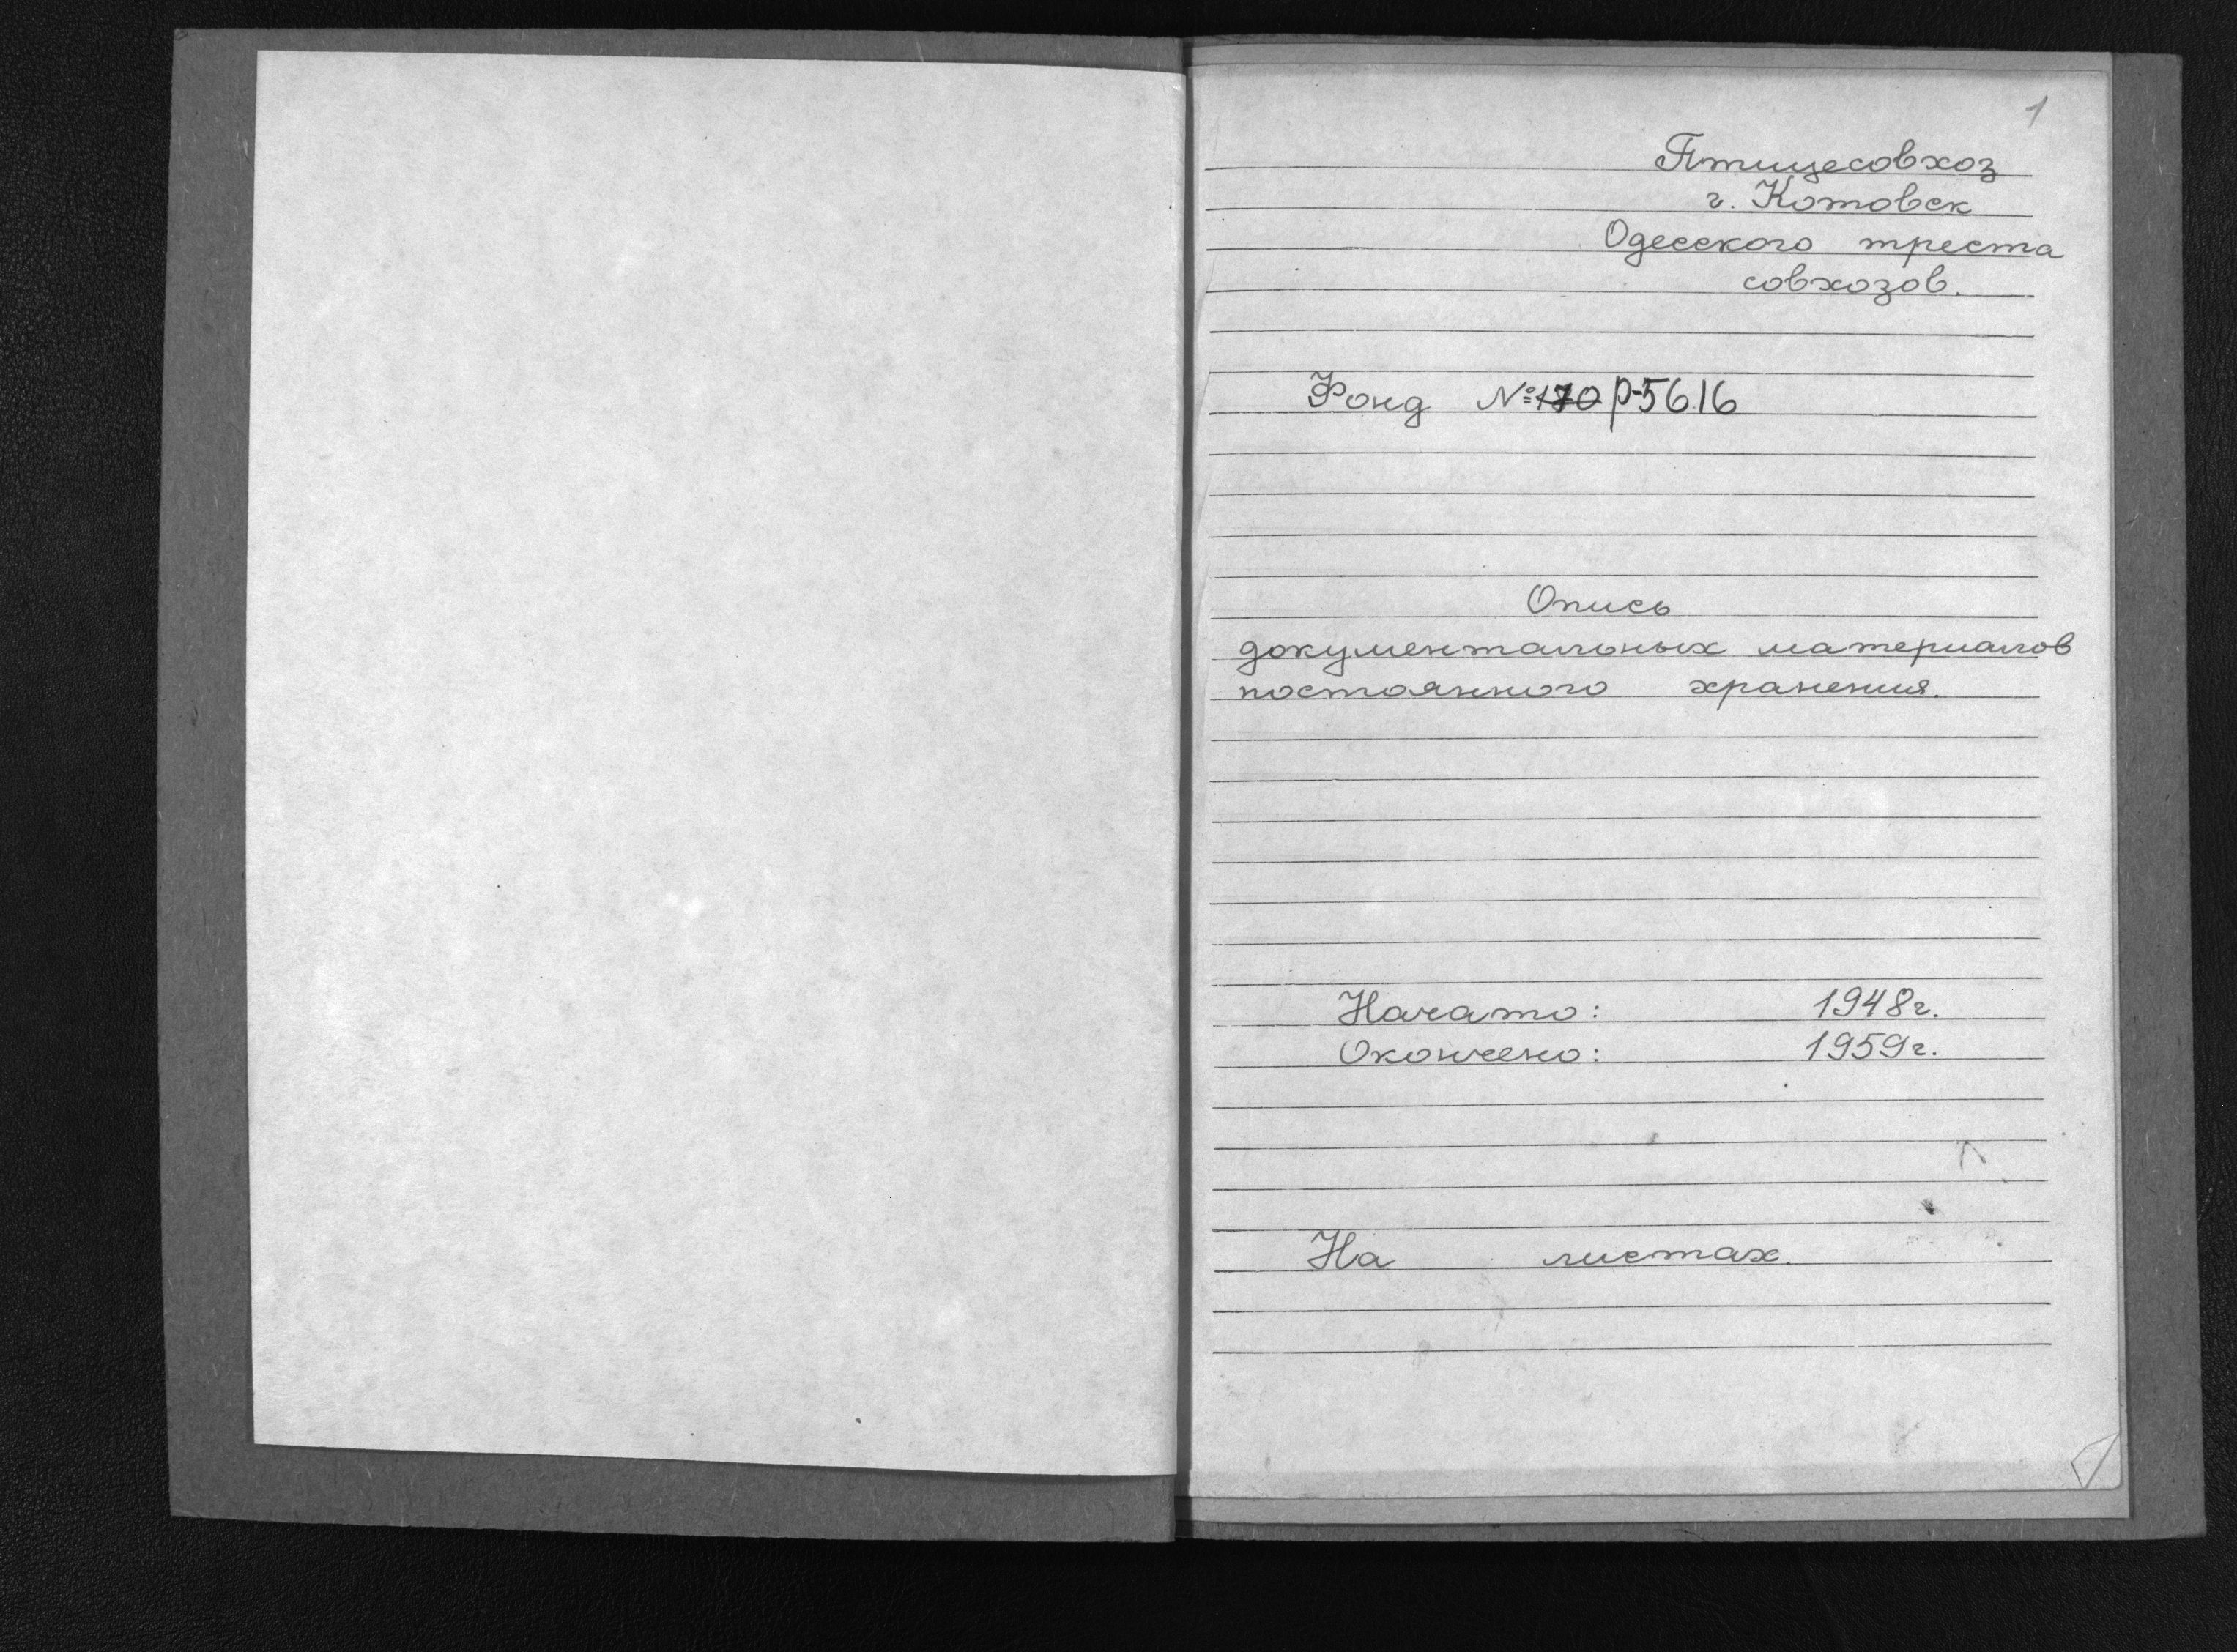 1
Птицесовхоз
г. Котовск
Одесского треста
совхозов.
Фонд № 170 Р-5616
Опись
документальных материалов
постоянного хранения.
Начато: 1948г.
Окончено: 1959г.
На листах.